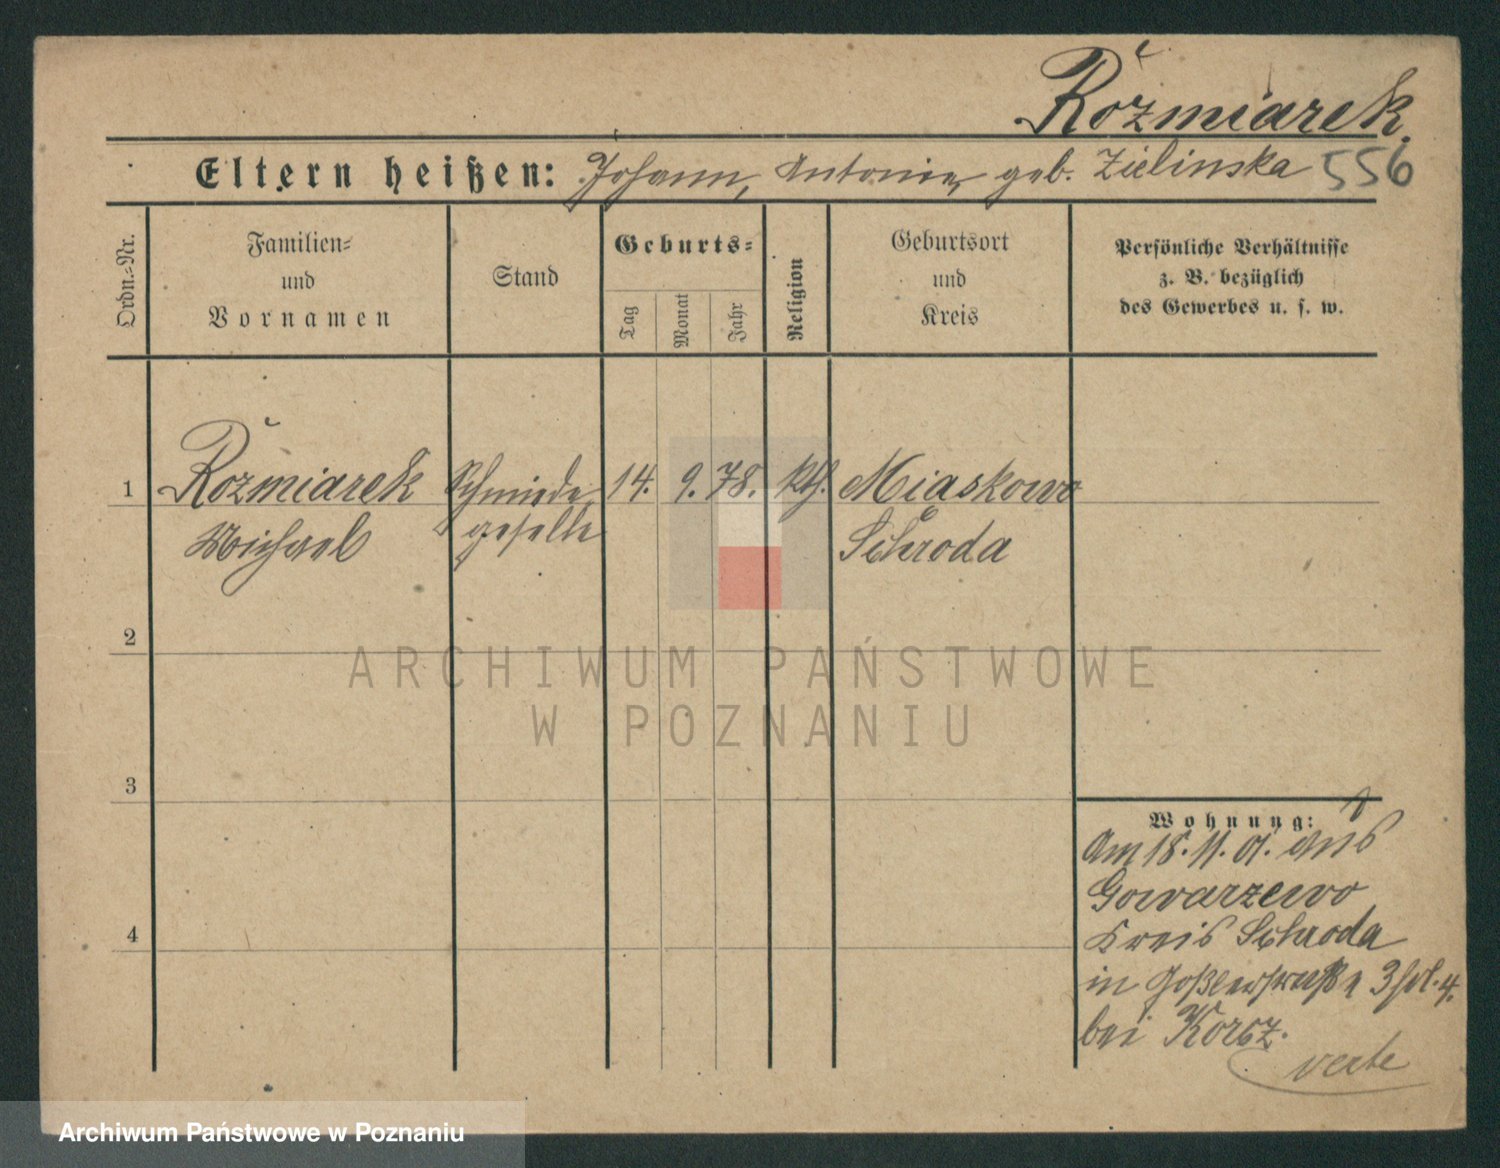 Rožmiarek.
Eltern heißen: Johann, Antonie, geb. Zielinska 556
Ordn.-Nr.
Familien-
und
Vornamen
Stand
Geburts-
Tag
Monat
Jahr
Religion
Geburtsort
und
Kreis
Persönliche Verhältnisse
z. B. bezüglich
des Gewerbes u. s. w.
1 Rožmiarek Schmiede 14. 9. 78. kth. Miaskowo
Michael geselle Schroda
2
ARCHIWUM PAŃSTWOWE
W POZNANIU
3
Wohnung:
Am 18. 11. 01. aus
Gowarzewo
4
Kreis Schroda
in Goßlerstraße 4.
bei Korcz.
verte
Archiwum Państwowe w Poznaniu